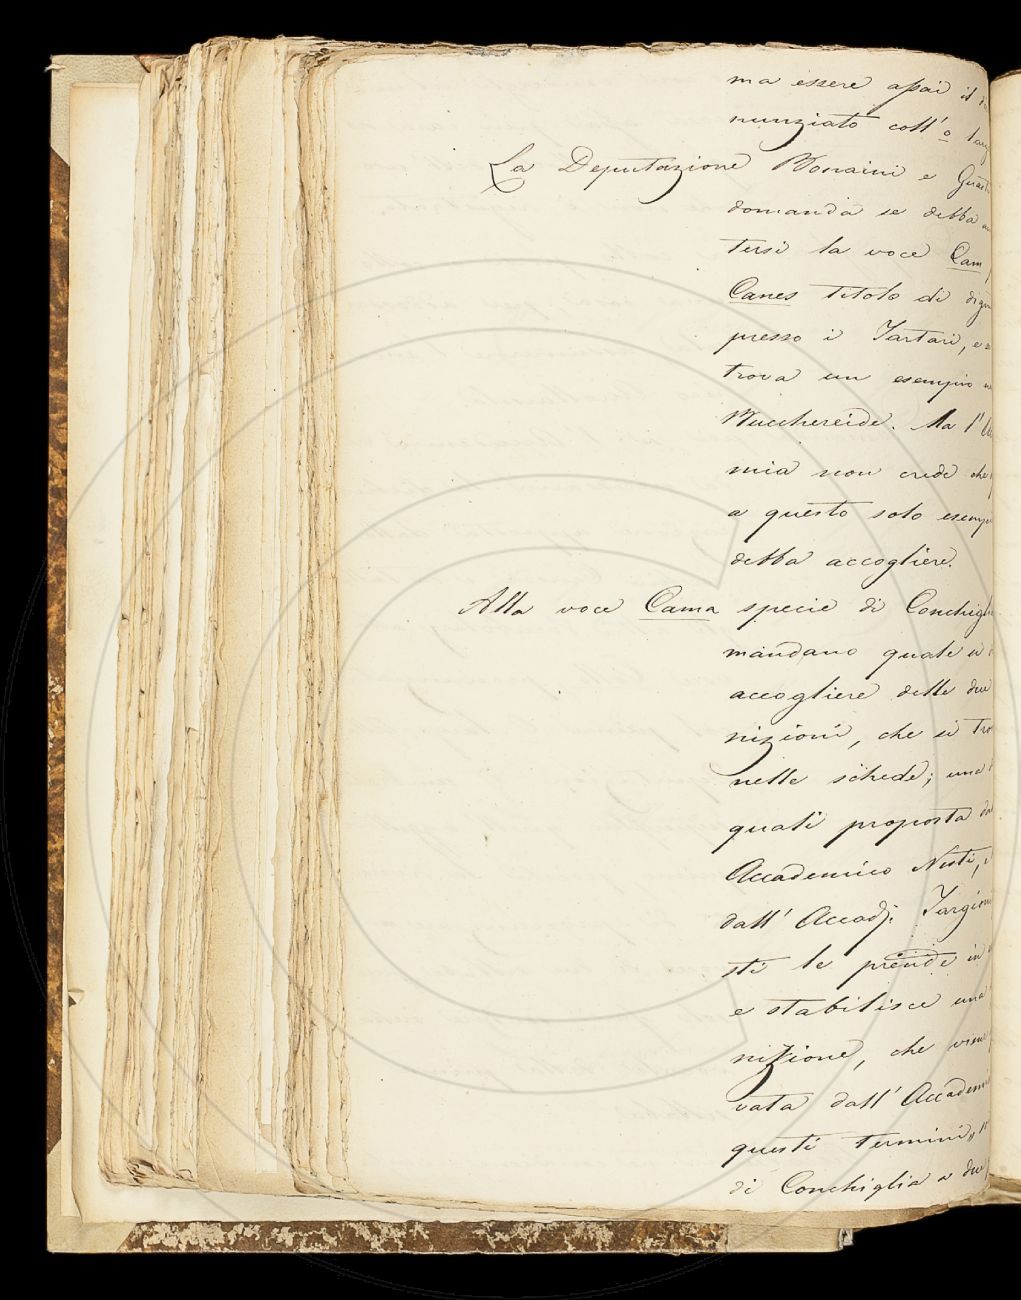 ma essere assai il
nunziato coll'o larg
La Deputazione Bonaini e
domanda se debba
tersi la voce Cam,
Canes titolo di dign
presso i Tartari, e
trova un esempio
Bucchereide. Ma l'
mia non crede che
a questo solo esemp
debba accogliere.
Alla voce Cama specie di Conchigl
mandano quale si
accogliere delle due
nizioni, che si tro
nelle schede; una
quali proposta da
Accademico Nesti,
dall' Accad: Targioni
sti le prende in
e stabilisce una
nizione, che viene
vata dall' Accademi
questi termini "
di Conchiglia a due